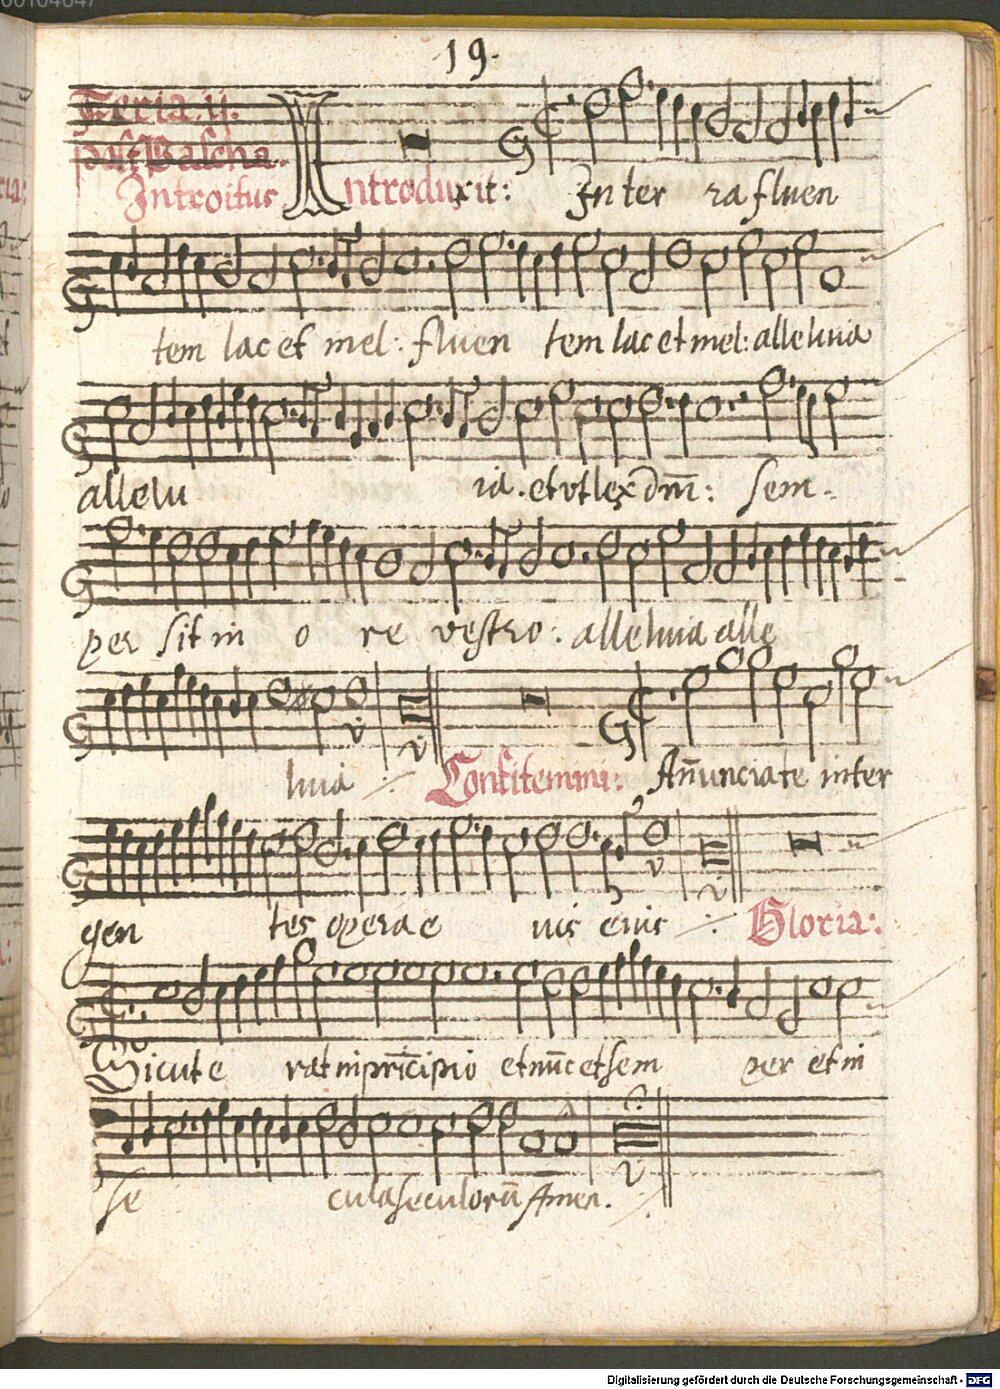 00104647
19.
Feria. ij.
post Pascha.
Introitus Introduxit: In ter ra fluen
tem lac et mel: fluen tem lac et mel: alleluia
allelu ia. et vt lex dm̄: sem-
per sit in o re vestro: alleluia alle
luia Confitemini: An̄unciate inter
gen tes opera e ius eius Gloria:
Sicut e rat in prīcipio et nūc et sem per et in
se cula seculorū Amen.
Digitalisierung gefördert durch die Deutsche Forschungsgemeinschaft - DFG